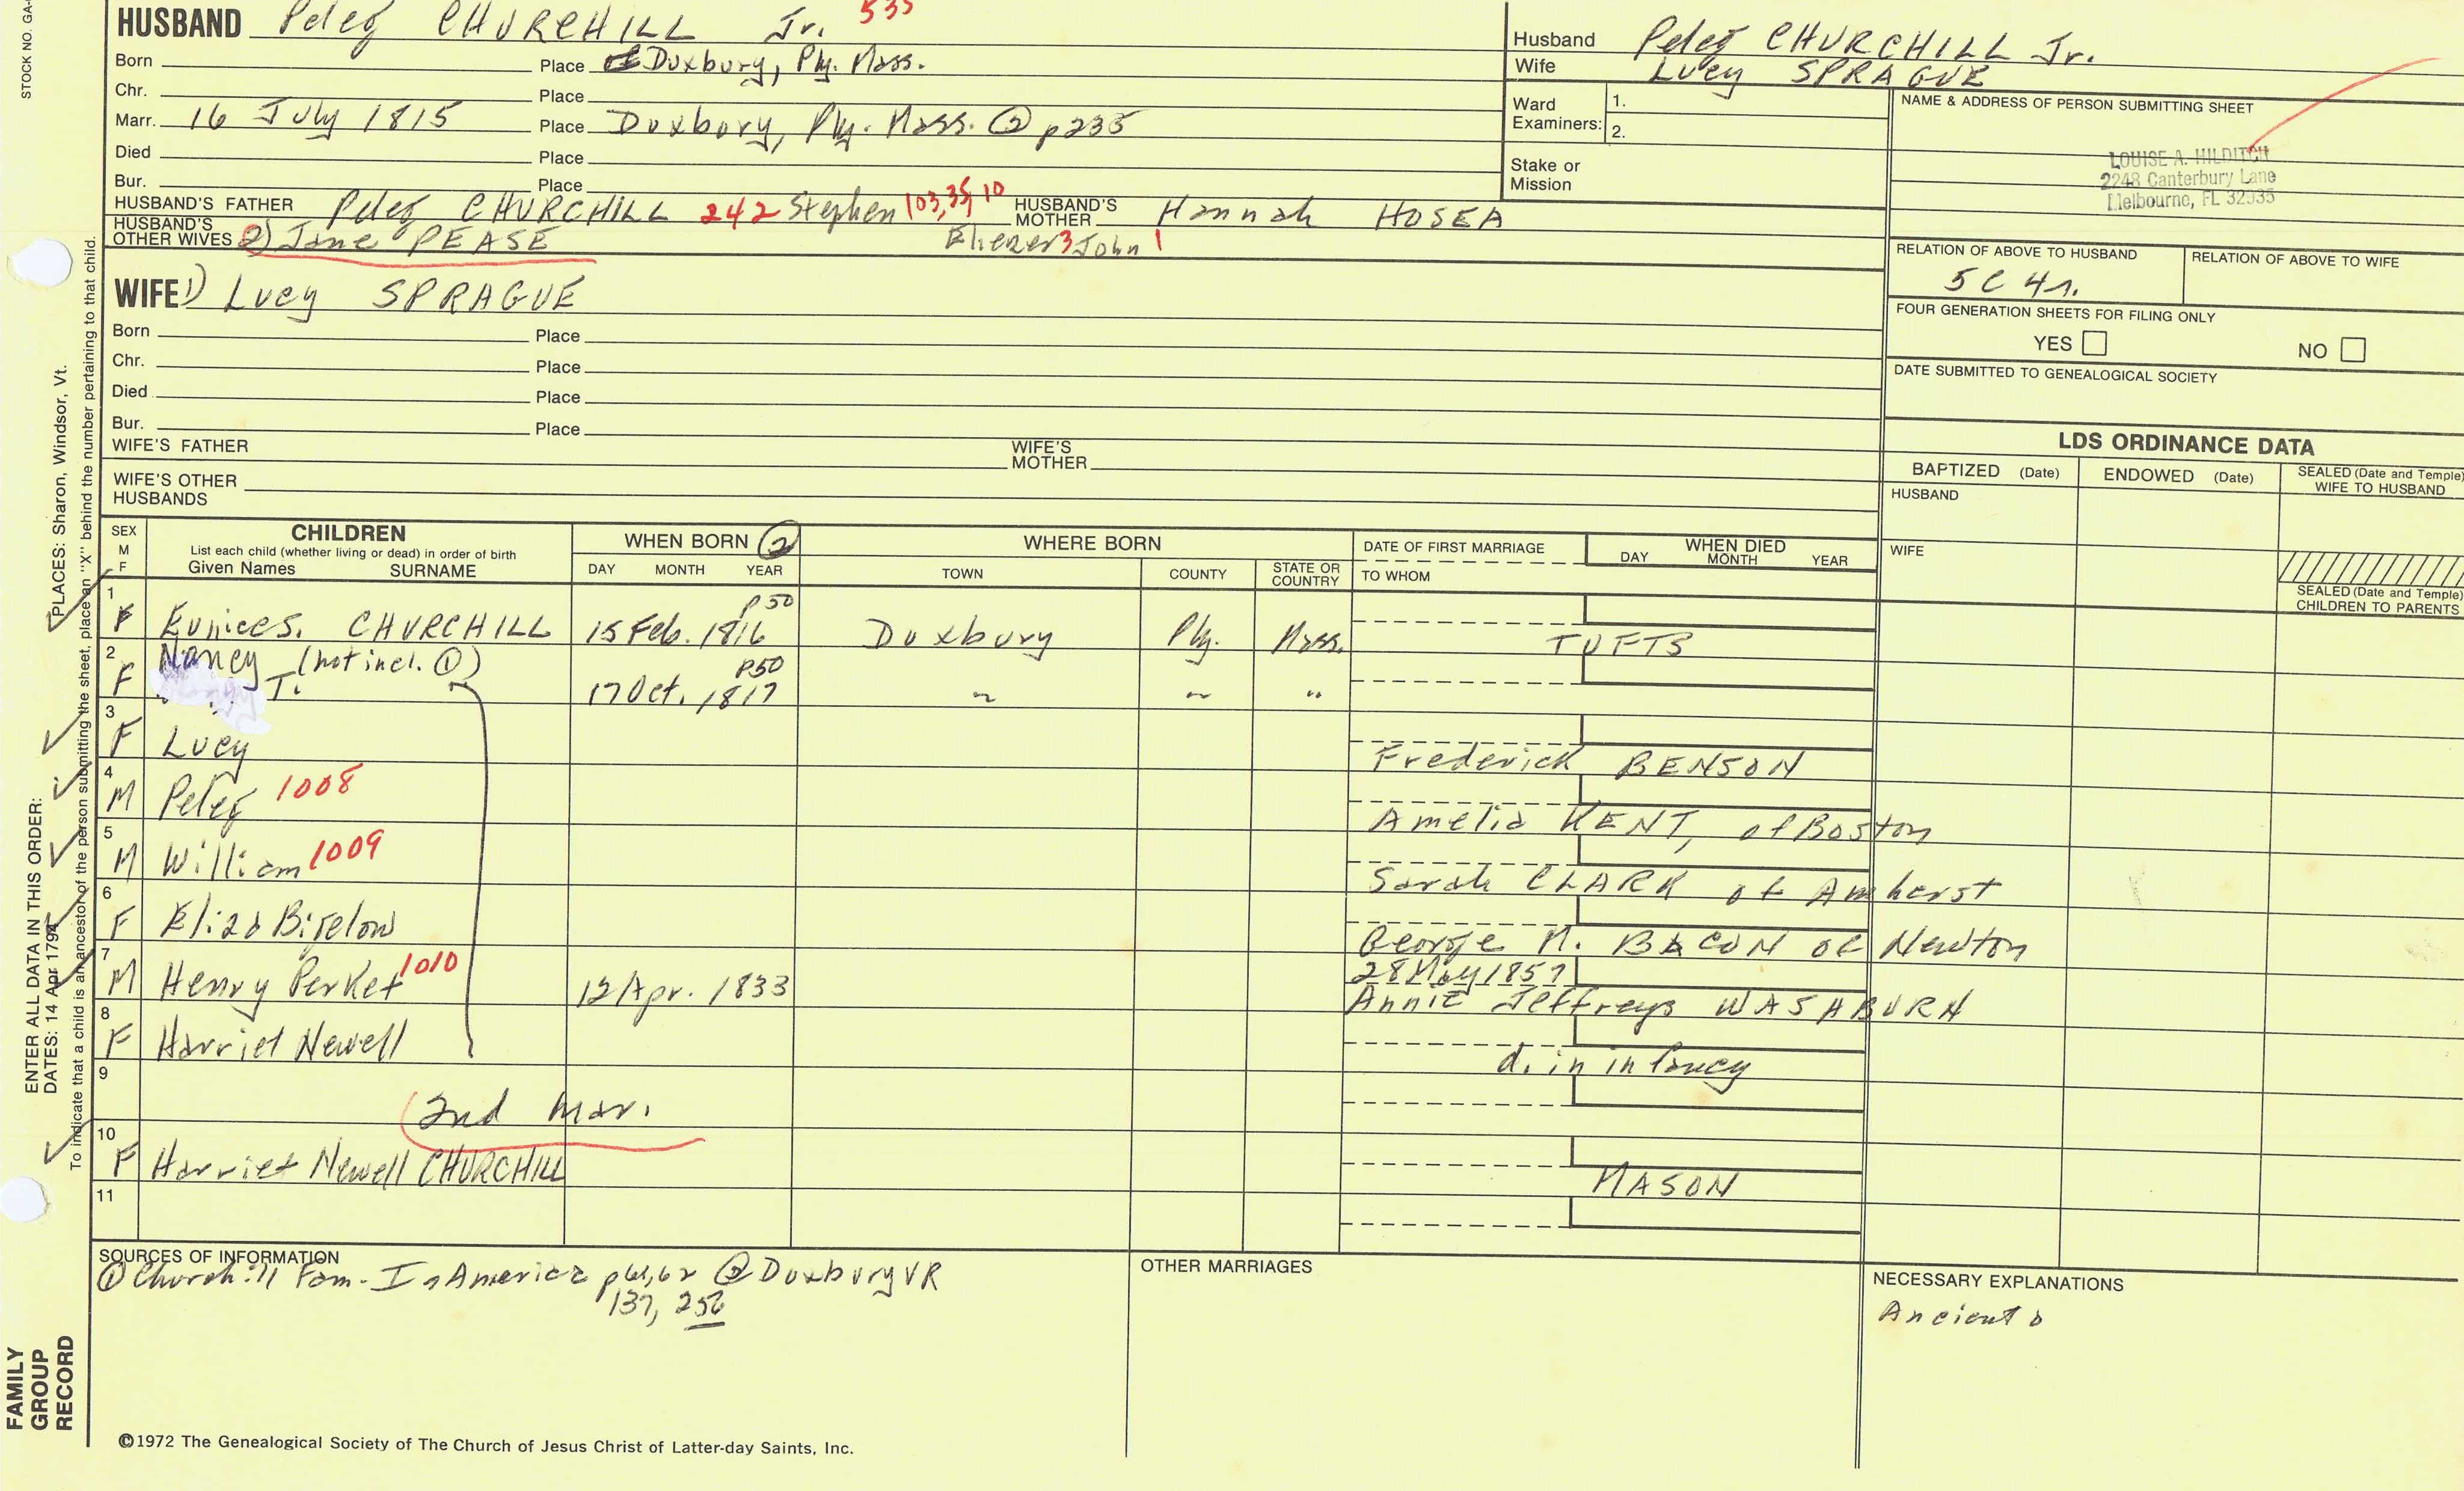 STOCK NO. GA-
HUSBAND Peleg CHURCHILL Jr. 535
Born Place Duxbury, Ply. Mass.
Chr. Place
Marr. 16 July 1815 Place Duxbury, Ply. Mass. ② p235
Died Place
Bur. Place
HUSBAND'S FATHER Peleg CHURCHILL 242 Stephen 103, 35, 10 HUSBAND'S MOTHER Hannah HOSEA
HUSBAND'S OTHER WIVES 2) Jane PEASE Eliezer 3 John 1
WIFE 1) Lucy SPRAGUE
Born Place
Chr. Place
Died Place
Bur. Place
WIFE'S FATHER WIFE'S MOTHER
WIFE'S OTHER HUSBANDS
Husband Peleg CHURCHILL Jr.
Wife Lucy SPRAGUE
Ward Examiners: 1.
2.
Stake or Mission
NAME & ADDRESS OF PERSON SUBMITTING SHEET
LOUISE A. HILDITCH
2248 Canterbury Lane
Melbourne, FL 32935
RELATION OF ABOVE TO HUSBAND RELATION OF ABOVE TO WIFE
5C 4r.
FOUR GENERATION SHEETS FOR FILING ONLY
YES NO
DATE SUBMITTED TO GENEALOGICAL SOCIETY
LDS ORDINANCE DATA
BAPTIZED (Date) ENDOWED (Date) SEALED (Date and Temple) WIFE TO HUSBAND
HUSBAND
WIFE
SEALED (Date and Temple) CHILDREN TO PARENTS
SEX M F CHILDREN
List each child (whether living or dead) in order of birth
Given Names SURNAME
WHEN BORN ②
DAY MONTH YEAR
WHERE BORN
TOWN COUNTY STATE OR COUNTRY
DATE OF FIRST MARRIAGE
TO WHOM
WHEN DIED
DAY MONTH YEAR
1 F Eunice S. CHURCHILL 15 Feb. 1816 p50 Duxbury Ply. Mass. TUFTS
2 F Nancy T. (not incl. ①) 17 Oct. 1817 p50 " " "
3 F Lucy Frederick BENSON
4 M Peleg 1008 Amelia KENT, of Boston
5 M William 1009 Sarah CLARK of Amherst
6 F Eliza Bigelow George M. BACON of Newton
7 M Henry Perket 1010 12 Apr. 1833 28 May 1857 Annie Jeffreys WASHBURN
8 F Harriet Newell d. in infancy
9 2nd mar.
10 F Harriet Newell CHURCHILL MASON
11
SOURCES OF INFORMATION
① Churchill Fam. In America p61,62 ② Duxbury VR
137, 256
OTHER MARRIAGES
NECESSARY EXPLANATIONS
Ancient
ENTER ALL DATA IN THIS ORDER:
DATES: 14 Apr 1794 PLACES: Sharon, Windsor, Vt.
To indicate that a child is an ancestor of the person submitting the sheet, place an "X" behind the number pertaining to that child.
FAMILY
GROUP
RECORD
©1972 The Genealogical Society of The Church of Jesus Christ of Latter-day Saints, Inc.